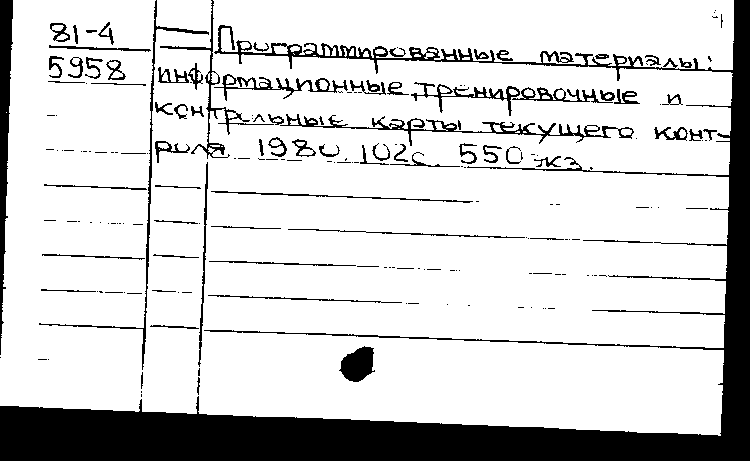 4
81-4 — Программированные материалы:
5958 информационные, тренировочные и
контрольные карты текущего конт-
роля. 1980. 102с. 550 экз.